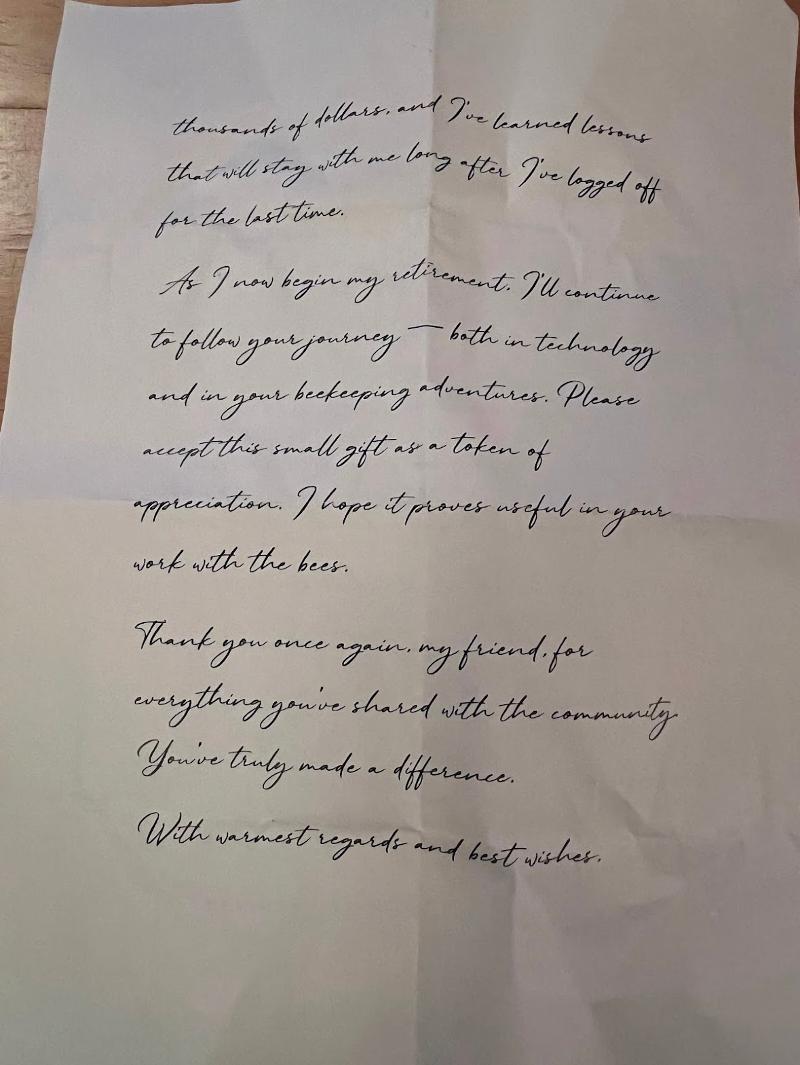 thousands of dollars, and I've learned lessons
that will stay with me long after I've logged off
for the last time.
As I now begin my retirement, I'll continue
to follow your journey — both in technology
and in your beekeeping adventures. Please
accept this small gift as a token of
appreciation. I hope it proves useful in your
work with the bees.
Thank you once again, my friend, for
everything you've shared with the community.
You've truly made a difference.
With warmest regards and best wishes,